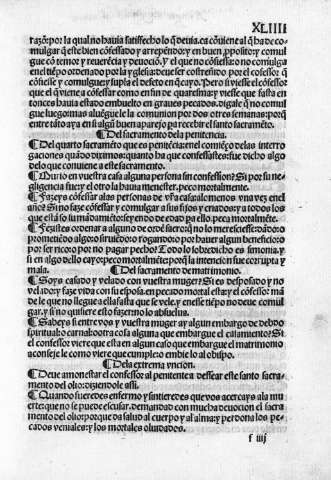 XLIIII
razõ:por la qual no hauia satisfecho lo q̃ deuia.ca cõuiene al q̃ ha de co
mulgar q̃ este bien cõfessado y arrepẽdido:y en buen ,pposito:y comul
gue cõ temor y reuerẽcia y deuociõ.Y el que no cõfiessa:o no comulga
en el tiẽpo ordenado por la yglesia:deue ser costreñido por el cõfessor q̃
cõfiesse y comulgue:y supla el defeto en q̃ cayo.Pero si viesse el cõfessor
que el q̃ viene a cõfessar como en fin de quaresma:y viesse que fasta en
tonces hauia estado embuelto en graues pecados. digale q̃ no comul
gue luego:mas aluẽgue le la comunion por dos otras semanas:porq̃
entre tãto aya en si algũ buen aparejo pa recebir el santo sacramẽto.
¶Del sacramento dela penitencia.
¶Del quarto sacramẽto que es penitẽcia:en el comiẽço delas interro
gaciones quãdo diximos:quanto ha que confessastes:fue dicho algo
delo que conuiene a este sacramento.
¶Murio en vuestra casa alguna persona sin confession? Si por su ne
gligencia fue:y el otro la hauia menester.peco mortalmente.
¶Fazeys cõfessar alas personas de ṽra casa:alomenos vna vez en el
año? Si no faze cõfessar y comulgar a sus fijos y criados:y a todos los
que está so su mãdamiẽto:seyendo de edad pa ello.peca mortalmẽte.
¶Fezistes ordenar a alguno de ordẽ sacro:q̃ no lo meresciesse:dãdo:o
prometiẽdo algo:o siruiẽdo:o rogando:o por hauer algun beneficio:o
por ser rico:o por no pagar pecho? Todo lo sobredicho es simonia.y
si en algo dello cayo:peco mortalmẽte:porq̃ la intenciõ fue corrupta y
mala. ¶Del sacramento de matrimonio.
¶Soys casado y velado con vuestra muger? Si es desposado y no
velado:y faze vida con su esposa.en pecado mortal esta:y el cõfessor mã
de le que no llegue a ella fasta que se vele.y en esse tiẽpo no deue comul
gar.y si no quisiere esto fazer:no lo absuelua.
¶Sabeys si entre vos y vuestra muger ay algun embargo de debdo
spiritual:o carnal:o otra cosa alguna que embargue el casamiento? Si
el confessor viere que esta en algun caso que embargue el matrimonio
aconseje le como viere que cumple:o embie lo al obispo.
¶Dela extrema vncion.
¶Deue amonestar el confessor al penitente a dessear este santo sacra-
mento del olio:diziendole assi.
¶Quando fueredes enfermo y sintieredes que vos acercays a la mu
erte:que no se puede escusar.demandad con mucha deuocion el sacra
mento del olio:porque da salud al cuerpo y al alma:y perdona los pe-
cados veniales:y los mortales oluidados.
f iiij